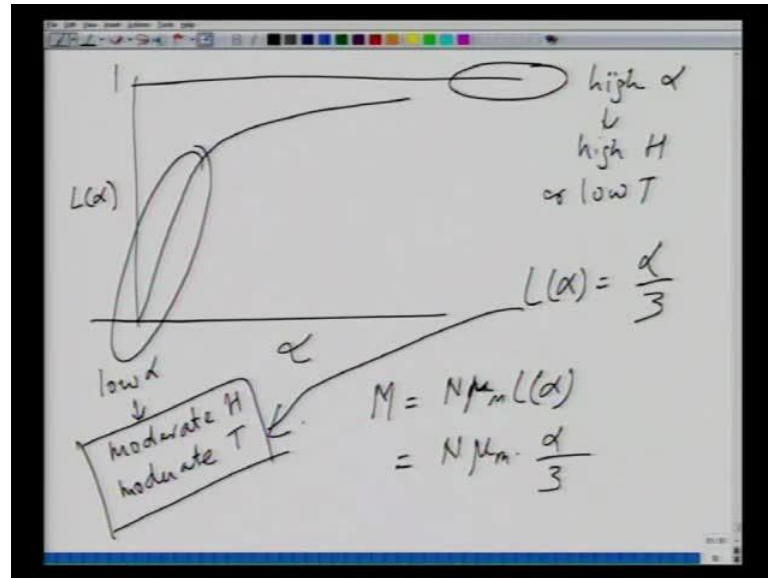 1
high α
↓
high H
or low T
L(α)
L(α) = α/3
α
low α
↓
moderate H
moderate T
M = Nμₘ L(α)
= Nμₘ · α/3